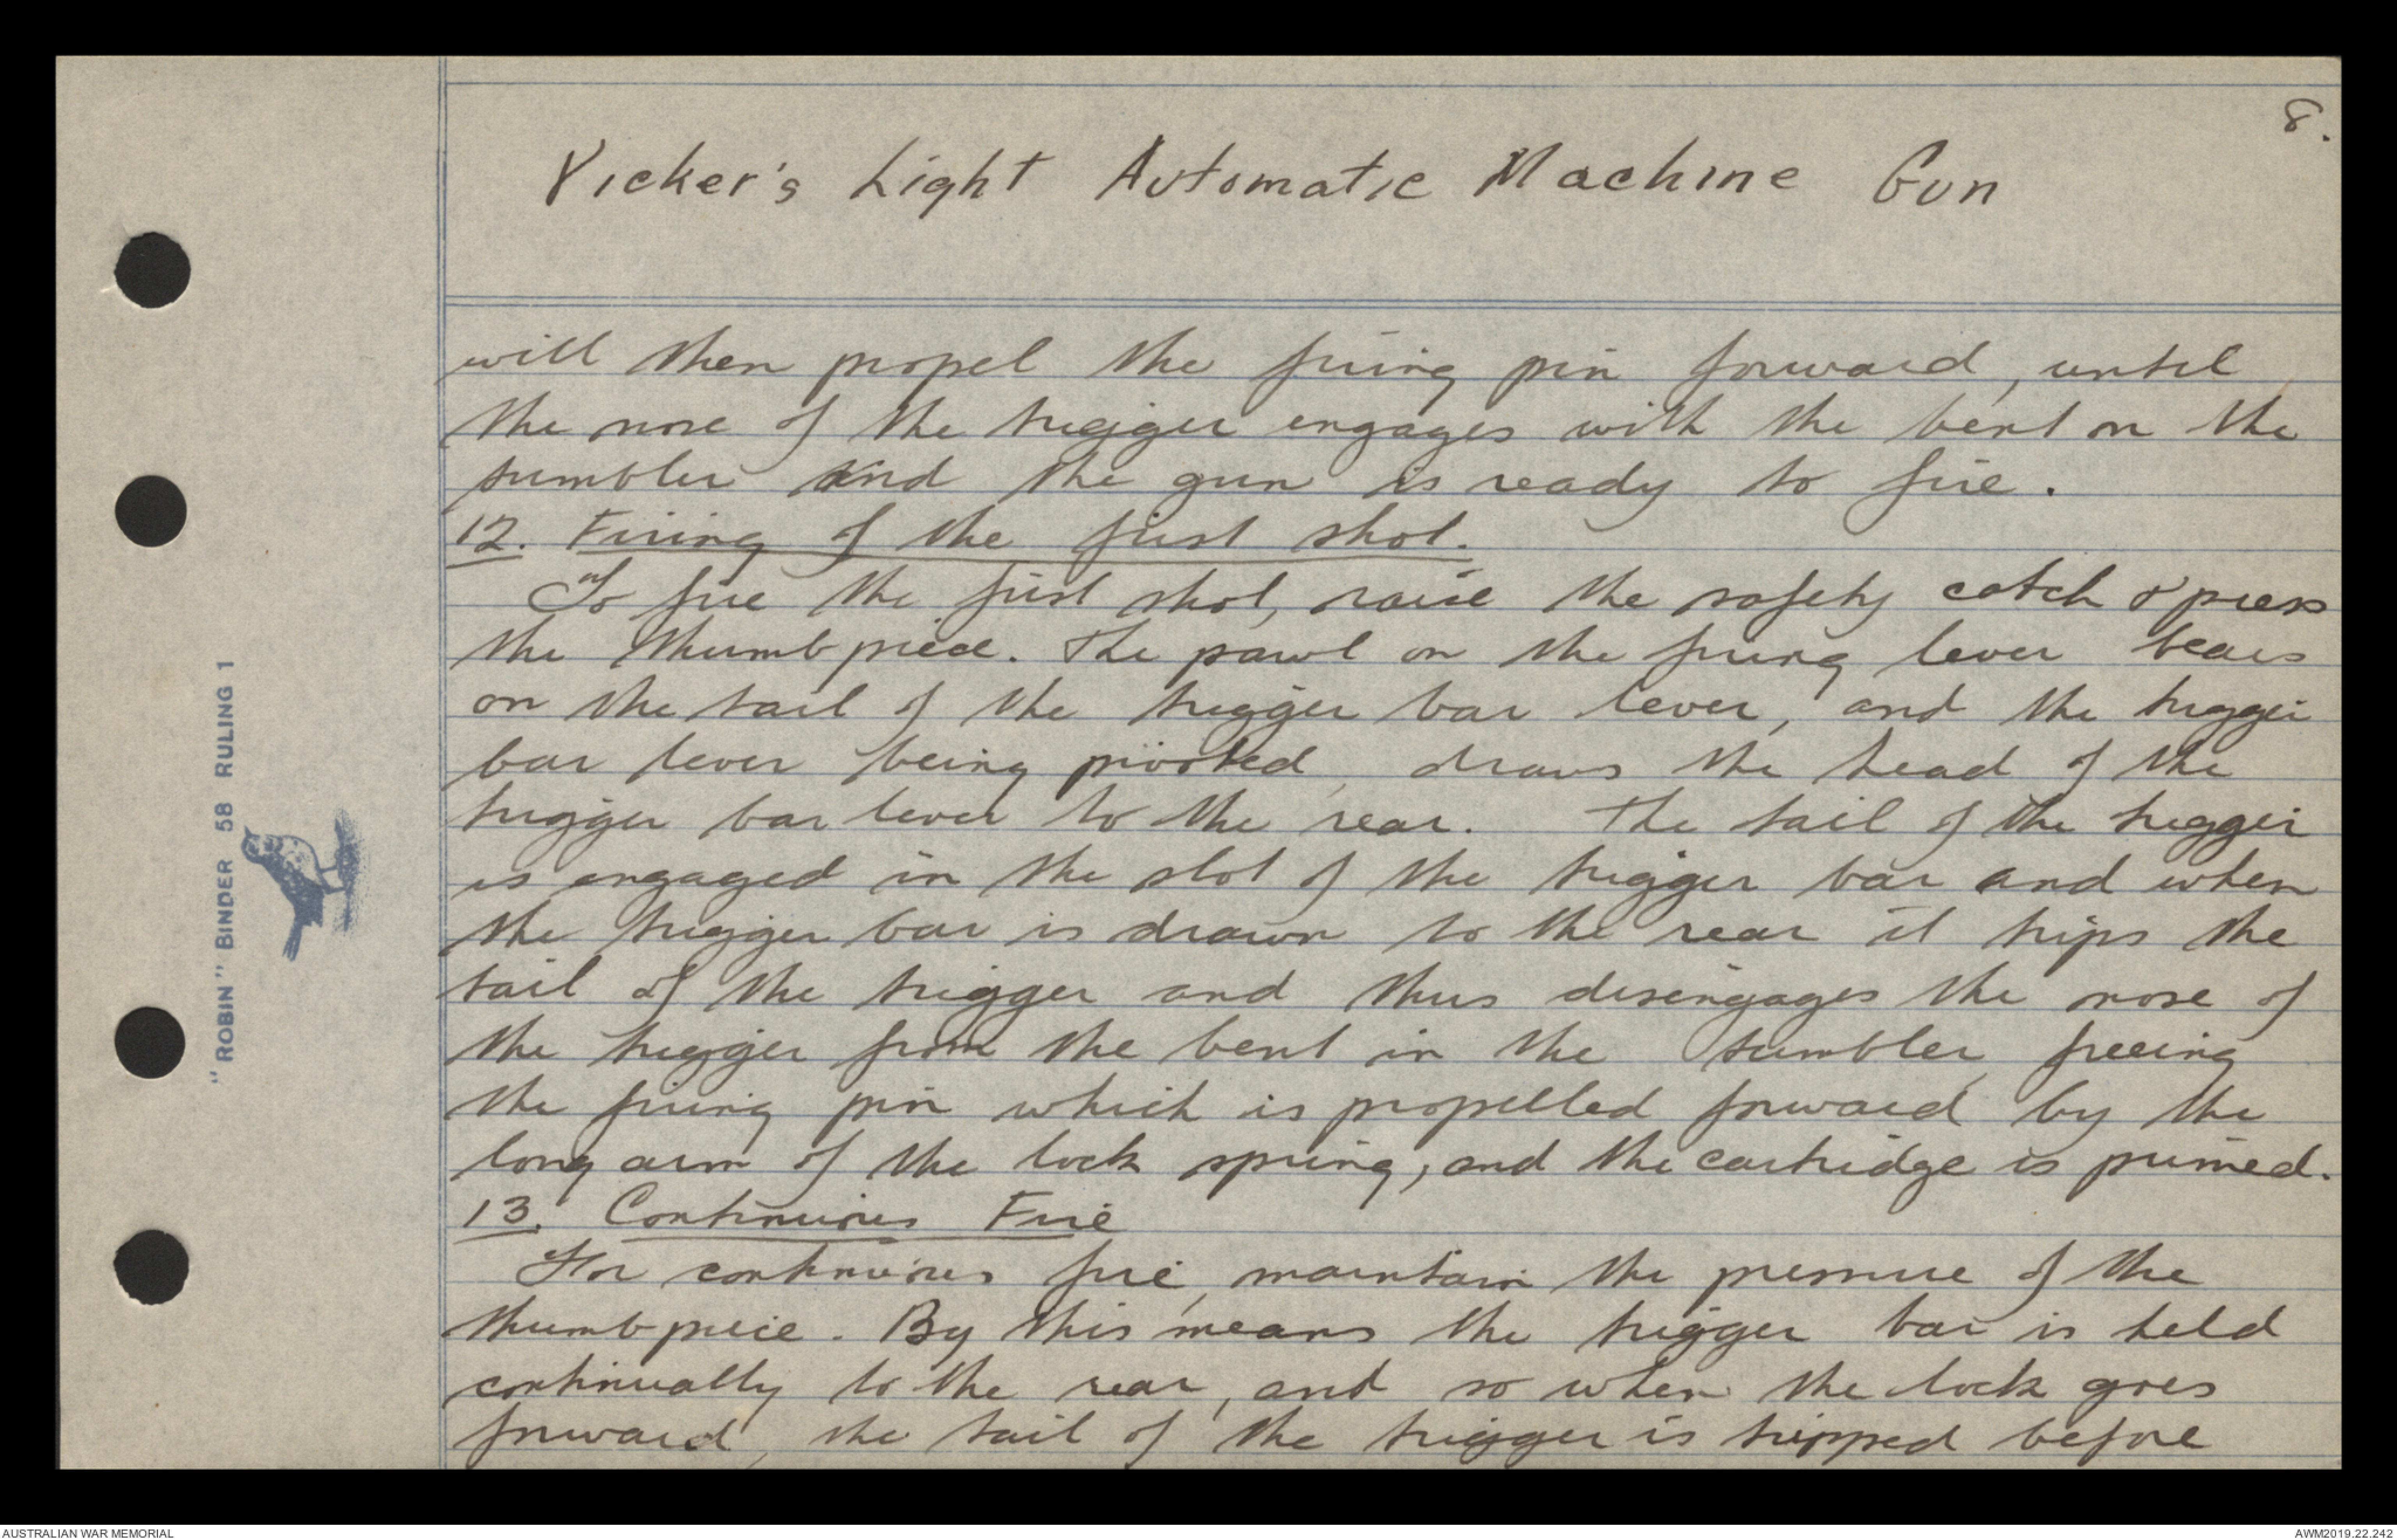 8.
Vicker's Light Automatic Machine Gun
will then propel the firing pin forward, until
the nose of the trigger engages with the bent on the
tumbler and the gun is ready to fire.
12. Firing of the first shot.
To fire the first shot, raise the safety catch & press
the thumb piece. The pawl on the firing lever bears
on the tail of the trigger bar lever, and the trigger
bar lever being pivoted, draws the head of the
trigger bar lever to the rear. The tail of the trigger
is engaged in the slot of the trigger bar and when
the trigger bar is drawn to the rear it trips the
tail of the trigger and thus disengages the nose of
the trigger from the bent in the tumbler, freeing
the firing pin which is propelled forward by the
long arm of the lock spring, and the cartridge is primed.
13. Continuous Fire
For continuous fire, maintain the pressure of the
thumb piece. By this means the trigger bar is held
continually to the rear, and so when the lock goes
forward, the tail of the trigger is tripped before
"ROBIN" BINDER 58 RULING 1
AUSTRALIAN WAR MEMORIAL
AWM2019.22.242